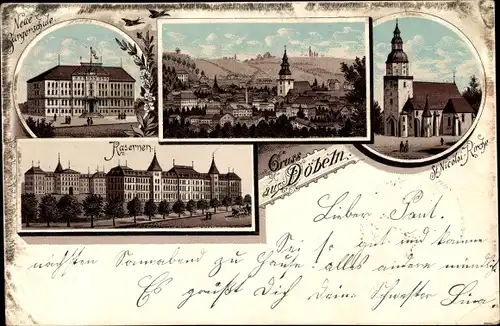 Neue
Bürgerschule.
Kasernen.
Gruss
aus Döbeln.
St. Nicolai-Kirche
Lieber Paul.
Sei so gut und komme
nächsten Sonnabend zu Hause. alles andere mündlich
Es grüßt Dich Deine Schwester